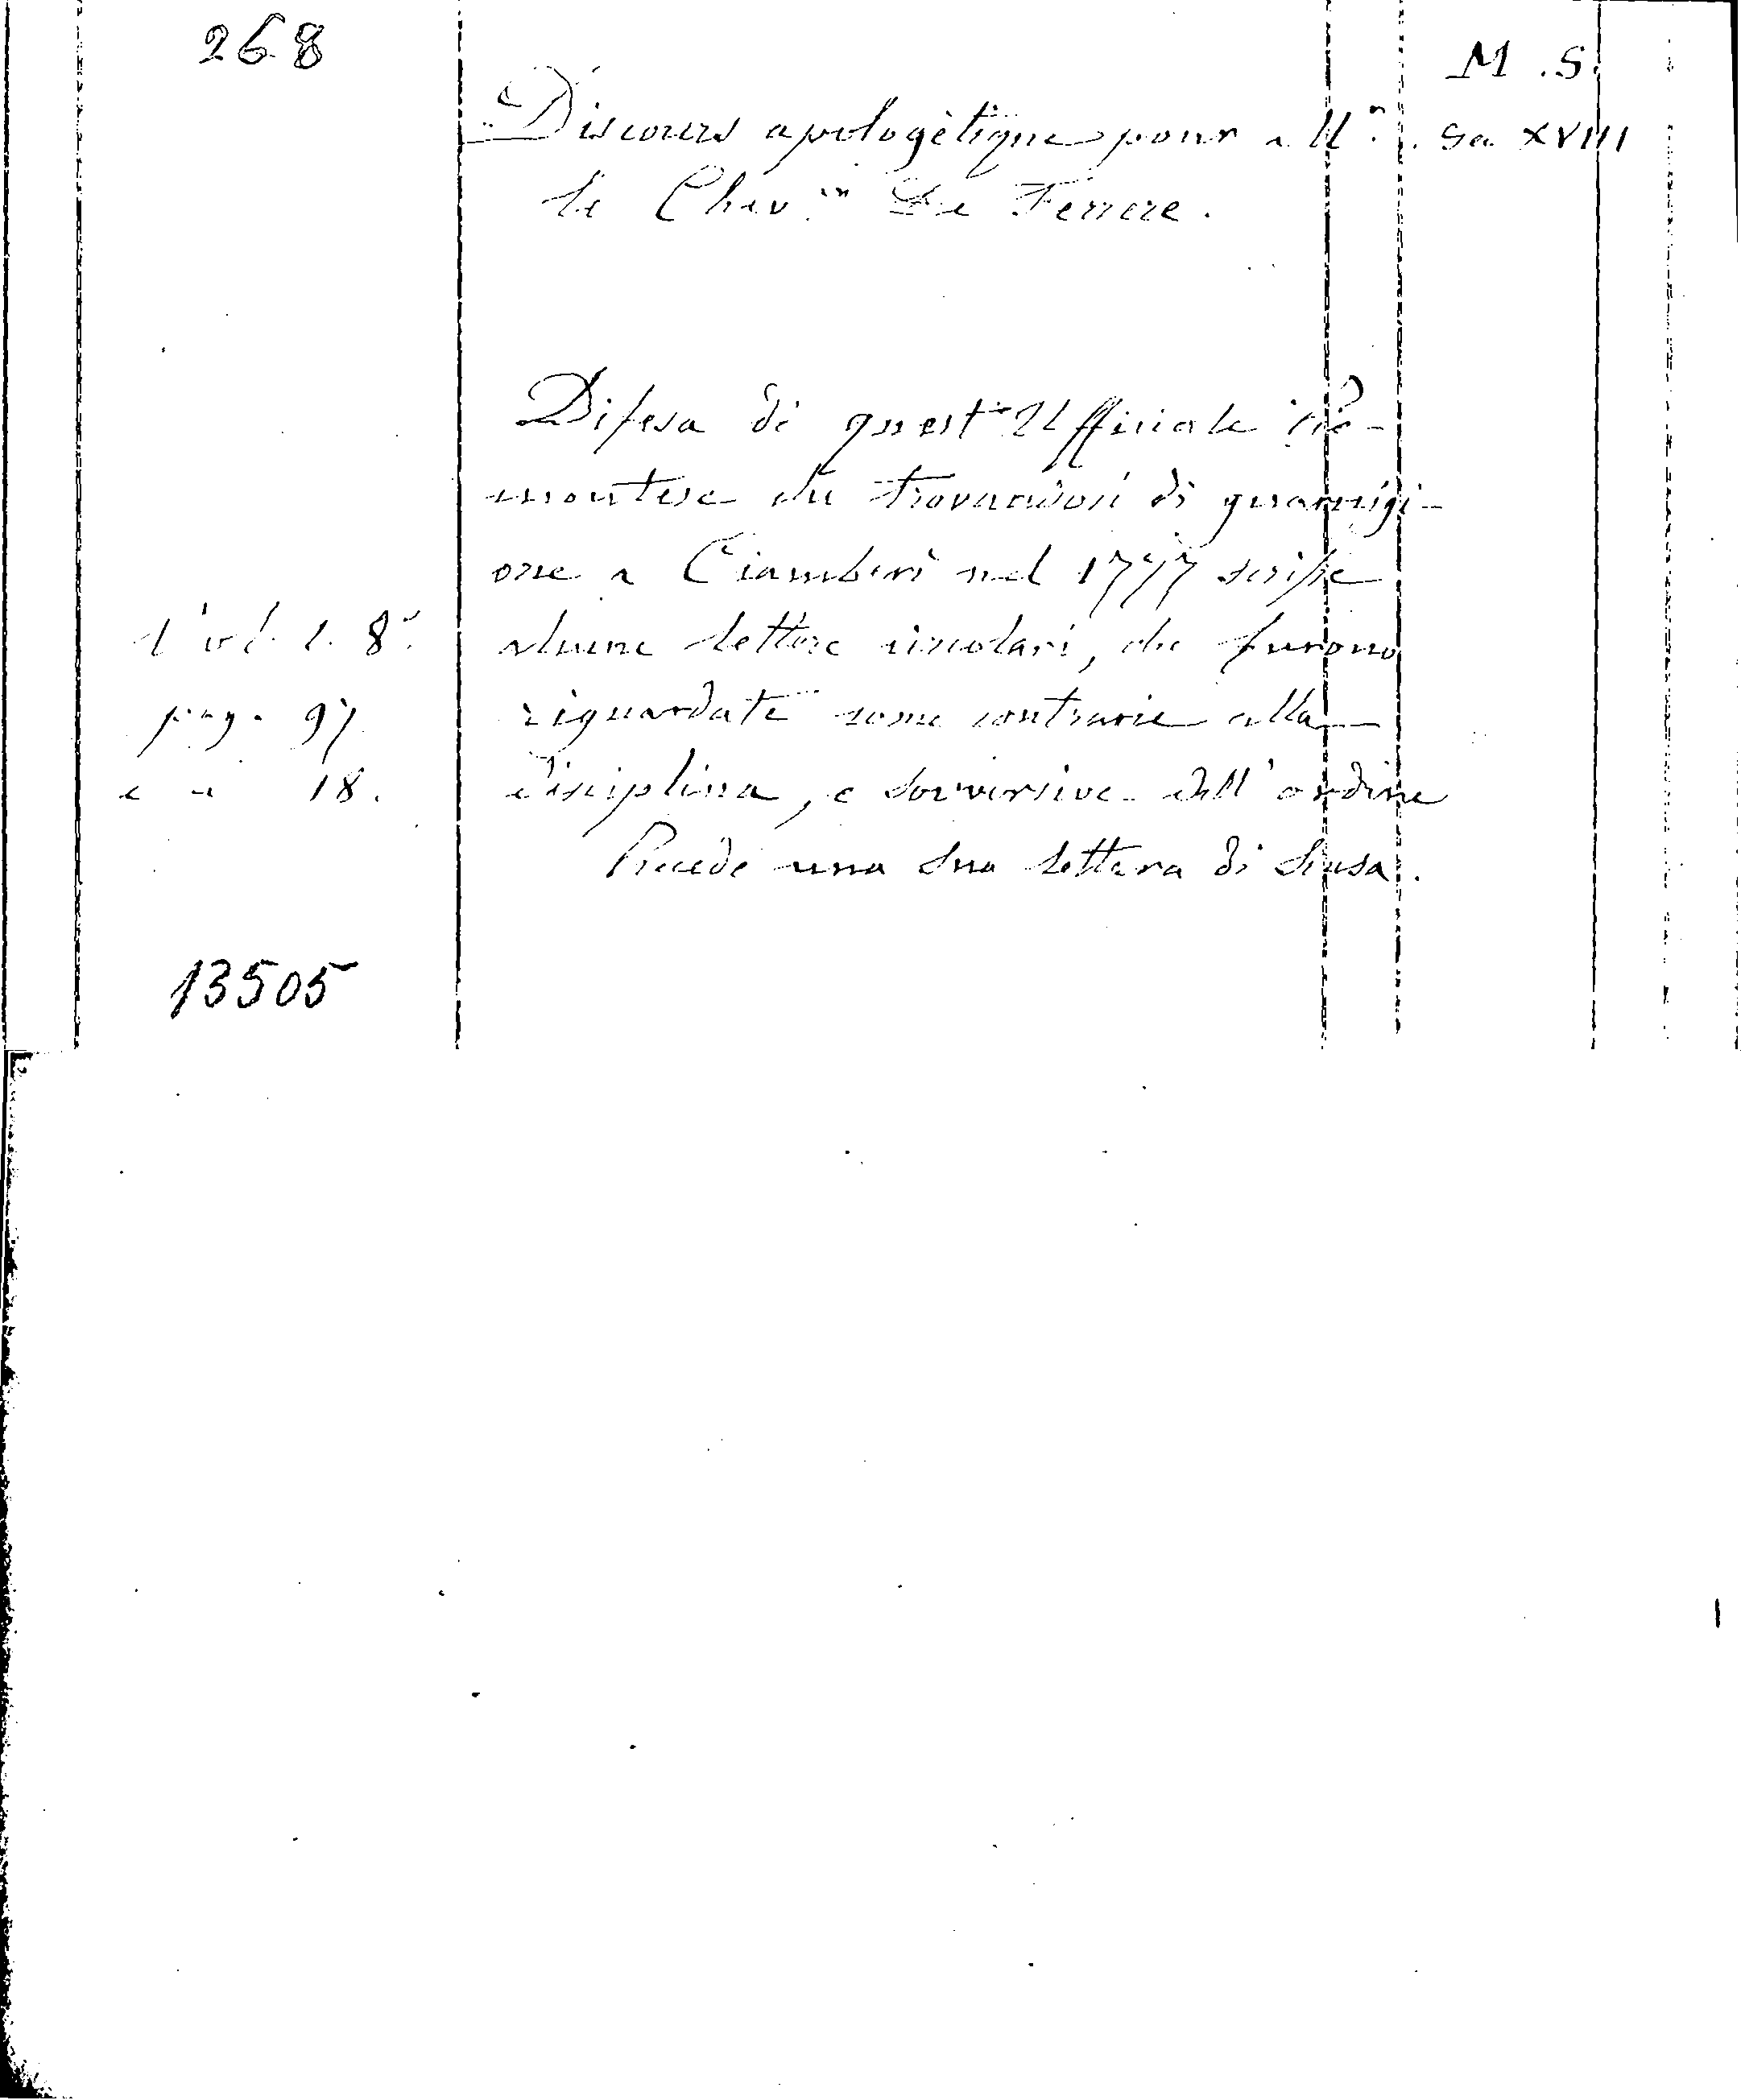 268
M. S.
Discours apologètique pour M.r
Sec XVIII
le Chev.er De Ferrere.
Difesa di quest'Ufficiale Pie-
montese che trovandosi di guarnigi-
one a Ciamberì nel 1777 scrisse
Vol. 1. 8.°
alcune lettere circolari, che furono
pag. 97
riguardate come contrarie alla
e 18.
disciplina, e sovversive dell'ordine
Precede una sua lettera di scusa.
13505